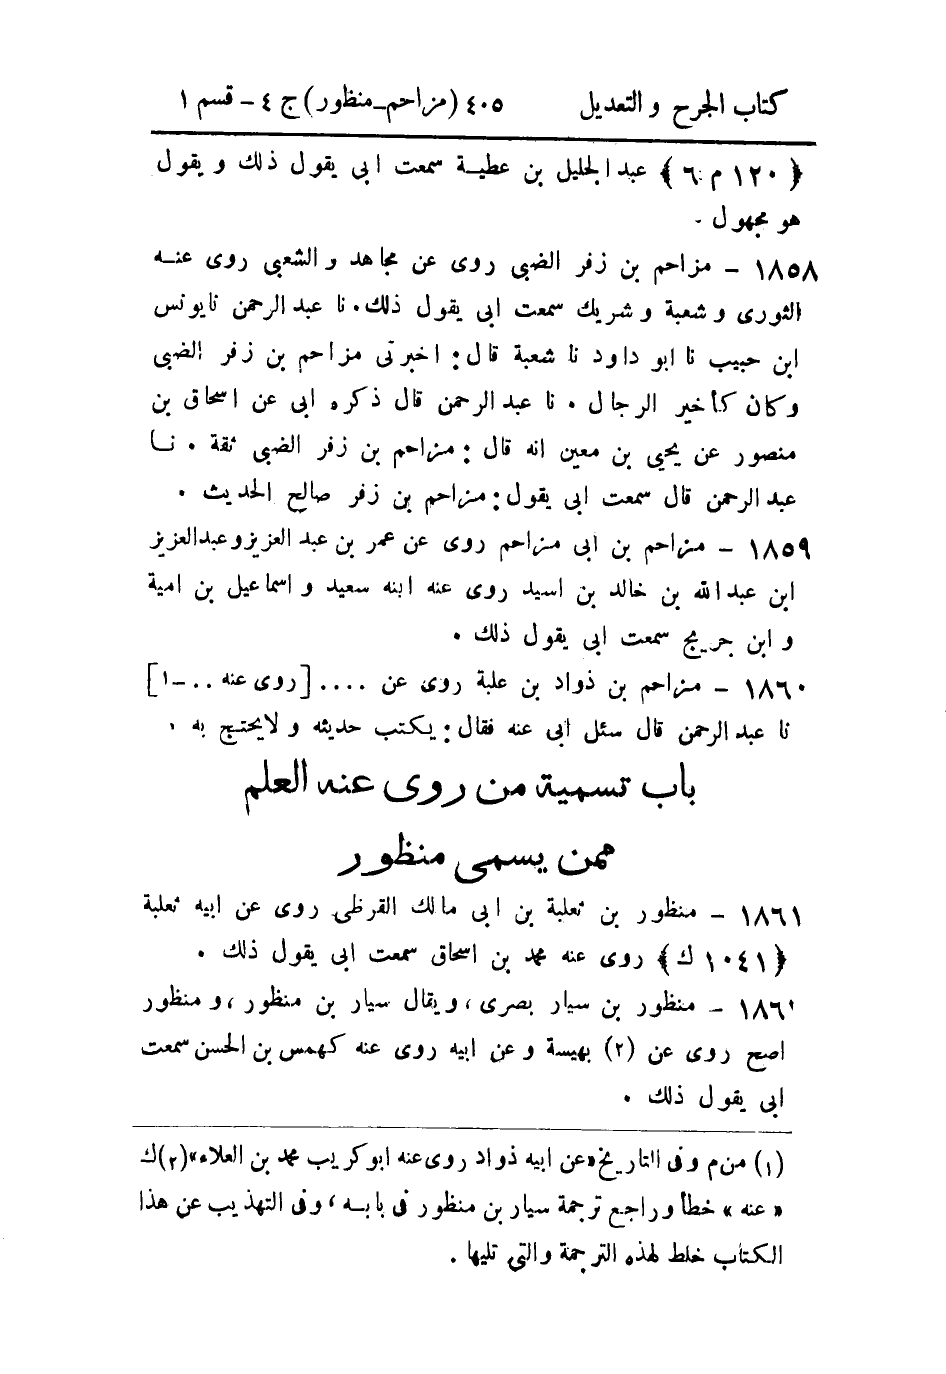 كتاب الجرح و التعديل ٤٠٥ (مزاحم-منظور) ج ٤ - قسم ١
﴿١٢٠ م ٦﴾ عبد الجليل بن عطية سمعت ابى يقول ذلك و يقول
هو مجهول .
١٨٥٨ - مزاحم بن زفر الضبى روى عن مجاهد و الشعبى روى عنه
الثورى و شعبة و شريك سمعت ابى يقول ذلك. نا عبد الرحمن نا يونس
ابن حبيب نا ابو داود نا شعبة قال: اخبرنى مزاحم بن زفر الضبى
وكان كأخير الرجال . نا عبد الرحمن قال ذكره ابى عن اسحاق بن
منصور عن يحيى بن معين انه قال: مزاحم بن زفر الضبى ثقة . نا
عبد الرحمن قال سمعت ابى يقول: مزاحم بن زفر صالح الحديث .
١٨٥٩ - مزاحم بن ابى مزاحم روى عن عمر بن عبد العزيز وعبدالعزيز
ابن عبد الله بن خالد بن اسيد روى عنه ابنه سعيد و اسماعيل بن امية
و ابن جريج سمعت ابى يقول ذلك .
١٨٦٠ - مزاحم بن ذواد بن علبة روى عن .... [روى عنه .. -١]
نا عبد الرحمن قال سئل ابى عنه فقال: يكتب حديثه و لا يحتج به .
باب تسمية من روى عنه العلم
ممن يسمى منظور
١٨٦١ - منظور بن ثعلبة بن ابى مالك القرظى روى عن ابيه ثعلبة
﴿١٠٤١ ك﴾ روى عنه محمد بن اسحاق سمعت ابى يقول ذلك .
١٨٦٢ - منظور بن سيار بصرى، ويقال سيار بن منظور، و منظور
اصح روى عن (٢) بهيسة و عن ابيه روى عنه كهمس بن الحسن سمعت
ابى يقول ذلك .
(١) من م وفى التاريخ «عن ابيه ذواد روى عنه ابوكريب محمد بن العلاء» (٢) ك
« عنه » خطأ و راجع ترجمة سيار بن منظور فى بابه، وفى التهذيب عن هذا
الكتاب خلط لهذه الترجمة والتى تليها .